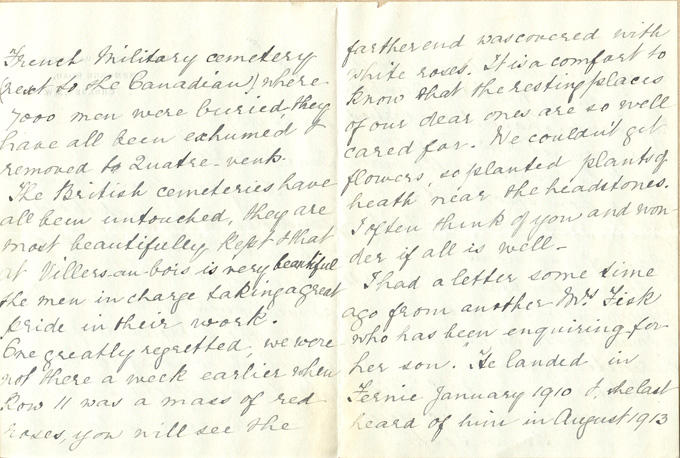 French Military cemetery
(next to the Canadian) where
7000 men were buried, they
have all been exhumed &
removed to Quatre-vents.
The British cemeteries have
all been untouched, they are
most beautifully kept & that
at Villers-au-bois is very beautiful
the men in charge taking a great
pride in their work.
One greatly regretted, we were
not there a week earlier when
Row 11 was a mass of red
roses, you will see the
farther end was covered with
white roses. It is a comfort to
know that the resting places
of our dear ones are so well
cared for. We couldn't get
flowers, so planted plants of
heath near the headstones.
I often think of you and won-
der if all is well_
I had a letter some time
ago from another Mrs Fisk
who has been enquiring for
her son. He landed in
Fernie January 1910 & she last
heard of him in August 1913